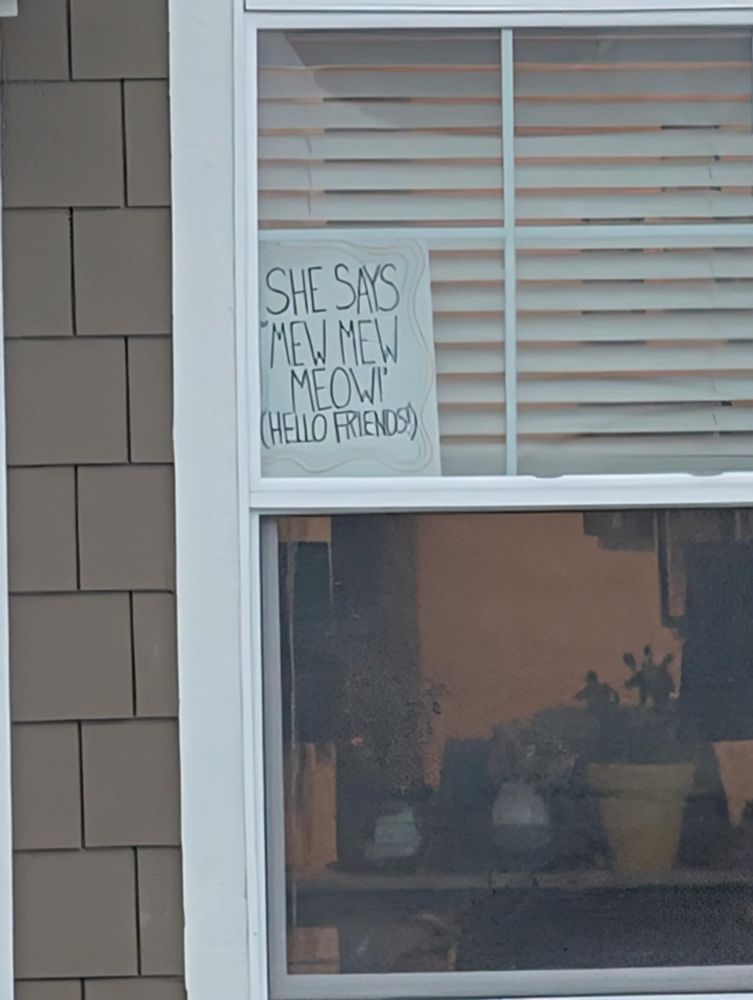 SHE SAYS
"MEW MEW
MEOW!"
(HELLO FRIENDS!)